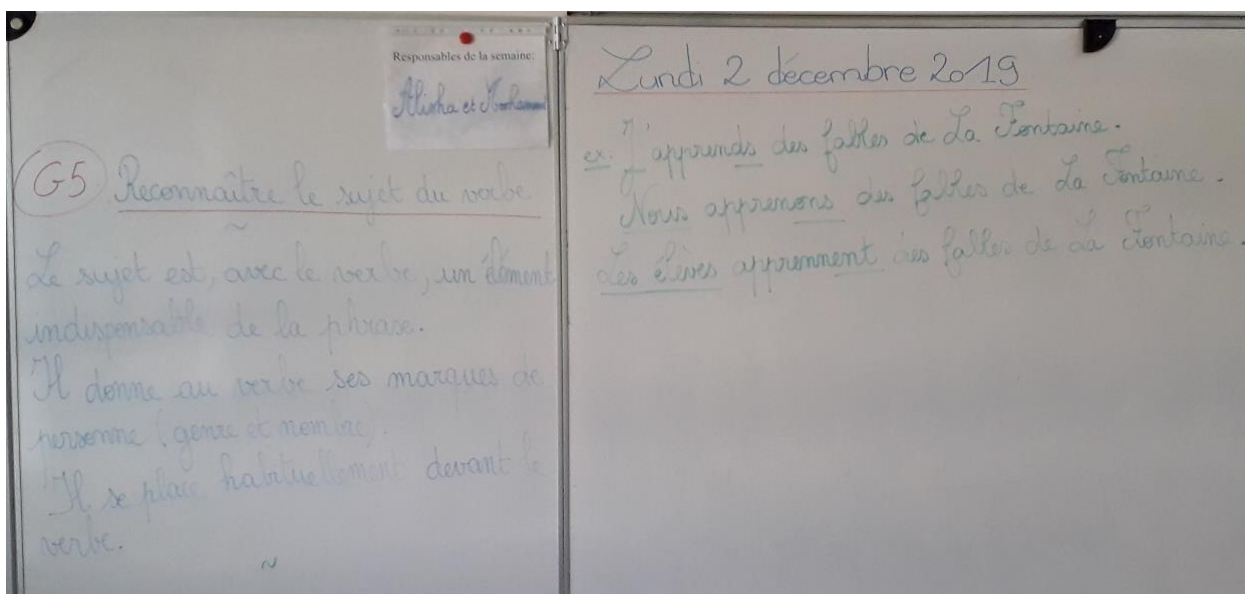 Responsables de la semaine:
Alisha et Mohammed
G5 Reconnaître le sujet du verbe
~
Le sujet est, avec le verbe, un élément
indispensable de la phrase.
Il donne au verbe ses marques de
personne (genre et nombre).
Il se place habituellement devant le
verbe.
~
Lundi 2 décembre 2019
ex: J'apprends des fables de La Fontaine.
Nous apprenons des fables de La Fontaine.
Les élèves apprennent des fables de La Fontaine.